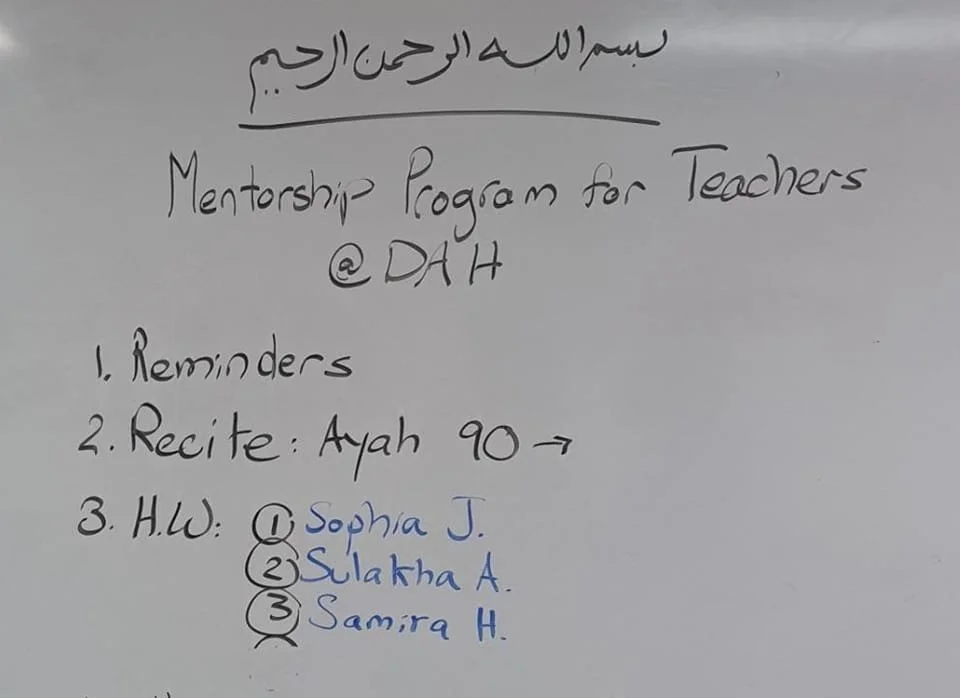 بسم الله الرحمن الرحيم
Mentorship Program for Teachers
@DAH
1. Reminders
2. Recite: Ayah 90 →
3. H.W: ① Sophia J.
② Sulakha A.
③ Samira H.